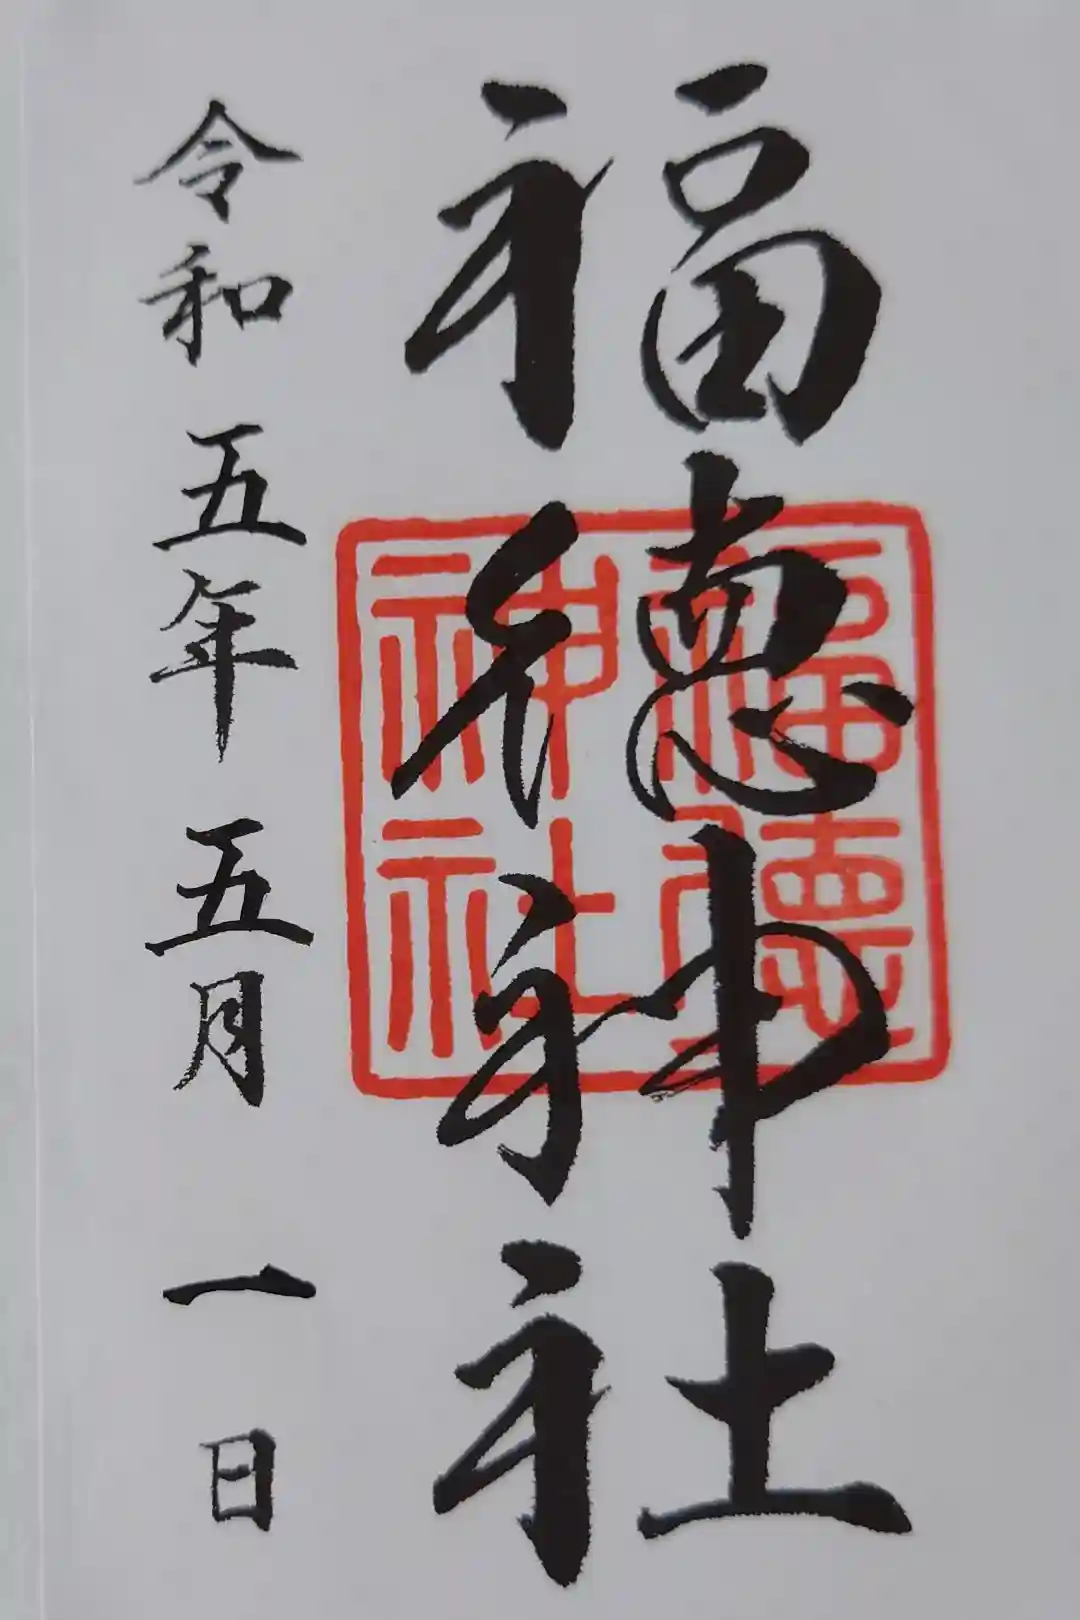 福徳神社
令和五年五月一日
福德
神社